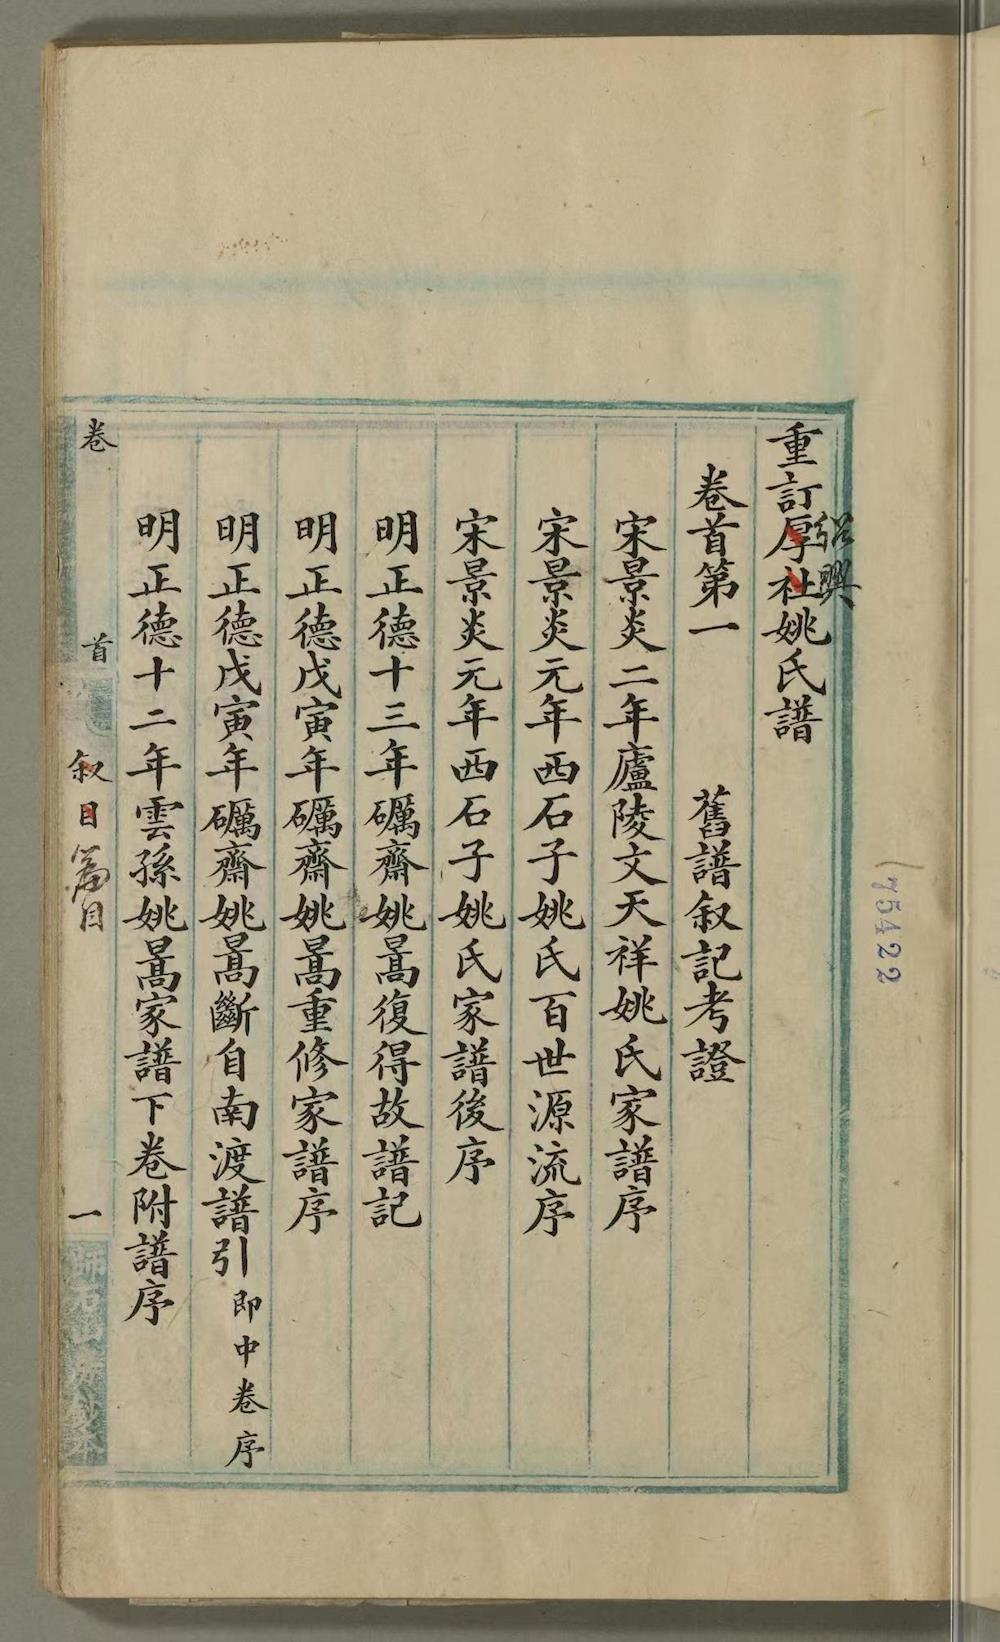 重訂厚社姚氏譜
紹興
卷首第一 舊譜叙記考證
宋景炎二年廬陵文天祥姚氏家譜序
宋景炎元年西石子姚氏百世源流序
宋景炎元年西石子姚氏家譜後序
明正德十三年礪齋姚暠復得故譜記
明正德戊寅年礪齋姚暠重修家譜序
明正德戊寅年礪齋姚暠斷自南渡譜引 即中卷序
明正德十二年雲孫姚暠家譜下卷附譜序
卷首 叙目 篇目 一
師石山房鈔本
75422